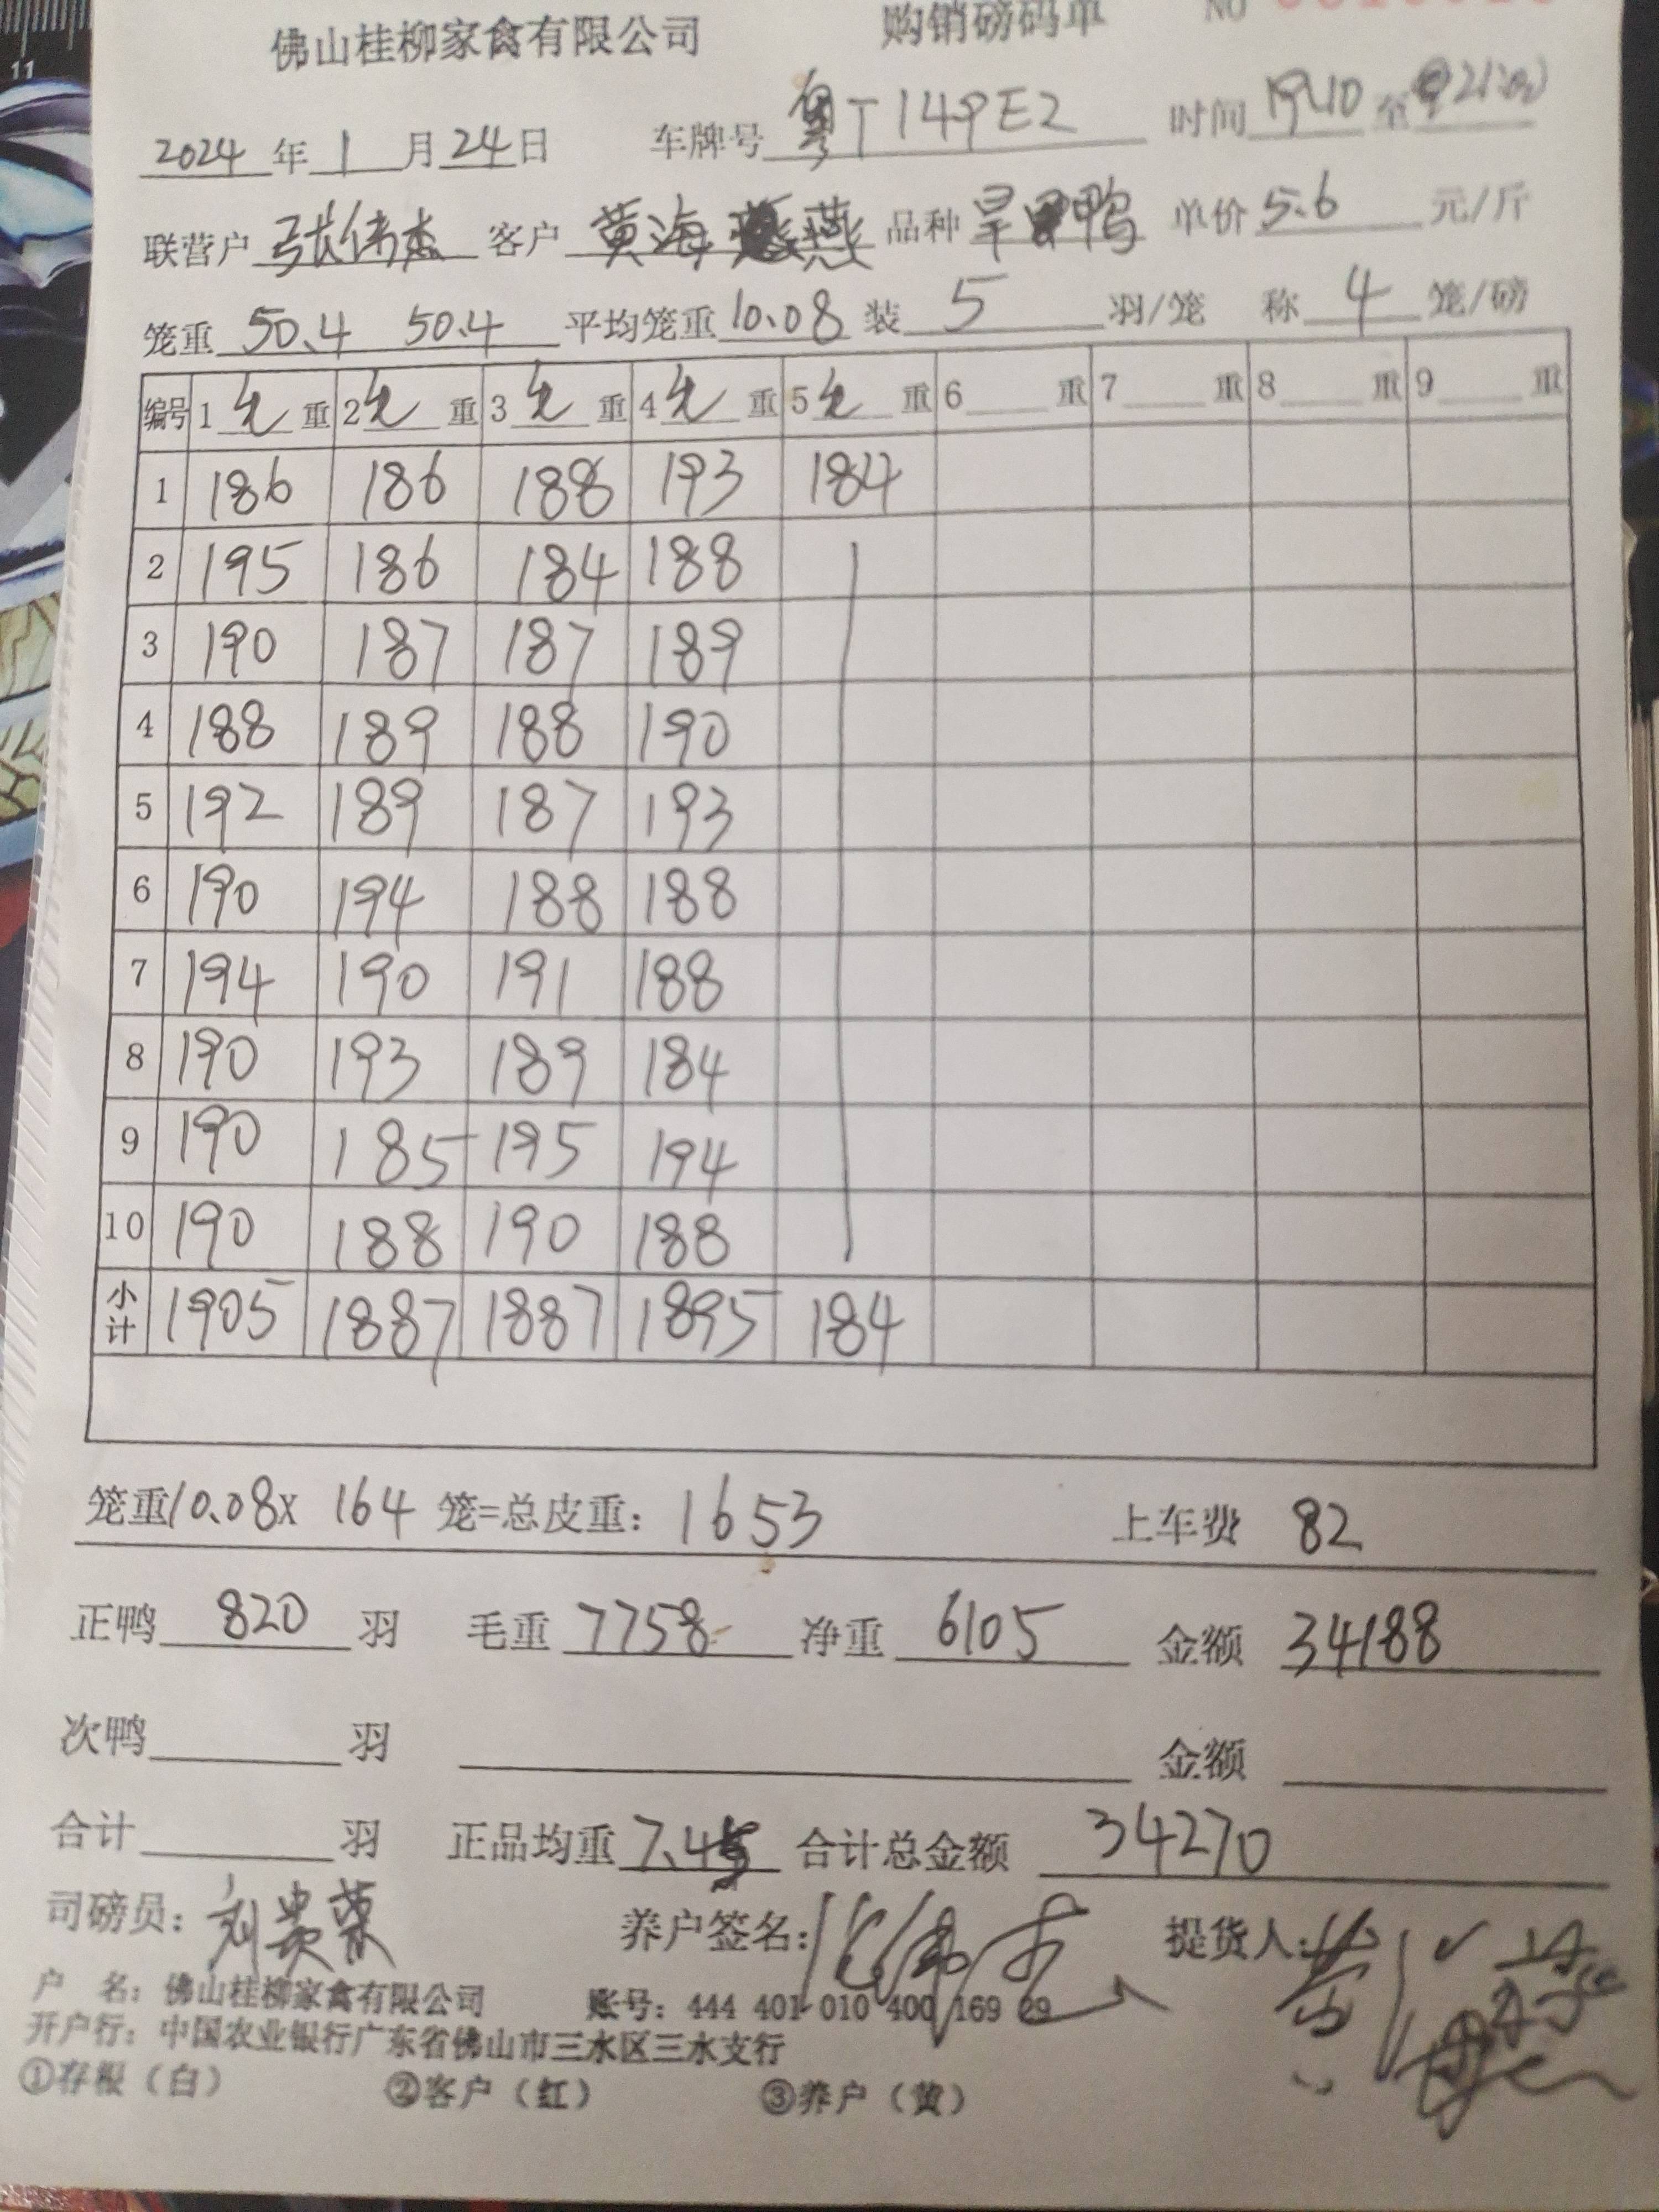 11
佛山桂柳家禽有限公司 购销磅码单 NO
2024 年 1 月 24 日 车牌号 粤T149E2 时间 19:10 至 21:00
联营户 张伟杰 客户 黄海燕 品种 旱鸭 单价 5.6 元/斤
笼重 50.4 50.4 平均笼重 10.08 装 5 羽/笼 称 4 笼/磅
编号 1 重 2 重 3 重 4 重 5 重 6 重 7 重 8 重 9 重
1 186 186 188 193 184
2 195 186 184 188
3 190 187 187 189
4 188 189 188 190
5 192 189 187 193
6 190 194 188 188
7 194 190 191 188
8 190 193 189 184
9 190 185 195 194
10 190 188 190 188
小计 1905 1887 1887 1895 184
笼重 10.08 X 164 笼=总皮重: 1653 上车费 82
正鸭 820 羽 毛重 7758 净重 6105 金额 34188
次鸭 羽 金额
合计 羽 正品均重 7.45 合计总金额 34270
司磅员: 刘贵荣 养户签名: 提货人:
户 名: 佛山桂柳家禽有限公司 账号: 444 401 010 400 169 29
开户行: 中国农业银行广东省佛山市三水区三水支行
①存根(白) ②客户(红) ③养户(黄)